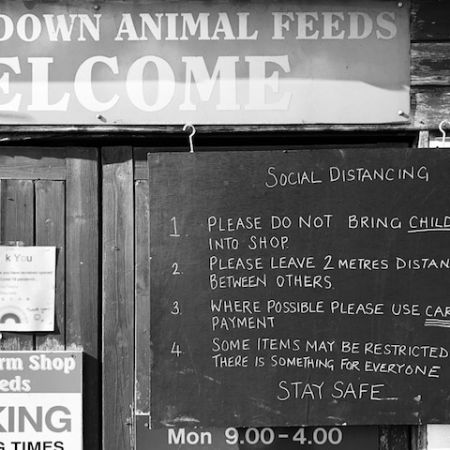 DOWN ANIMAL FEEDS
ELCOME
SOCIAL DISTANCING
1. PLEASE DO NOT BRING CHILD
INTO SHOP.
2. PLEASE LEAVE 2 METRES DISTAN
BETWEEN OTHERS
3. WHERE POSSIBLE PLEASE USE CAR
PAYMENT
4 SOME ITEMS MAY BE RESTRICTED
THERE IS SOMETHING FOR EVERYONE
STAY SAFE
k You
rm Shop
eds
KING
G TIMES
Mon 9.00-4.00